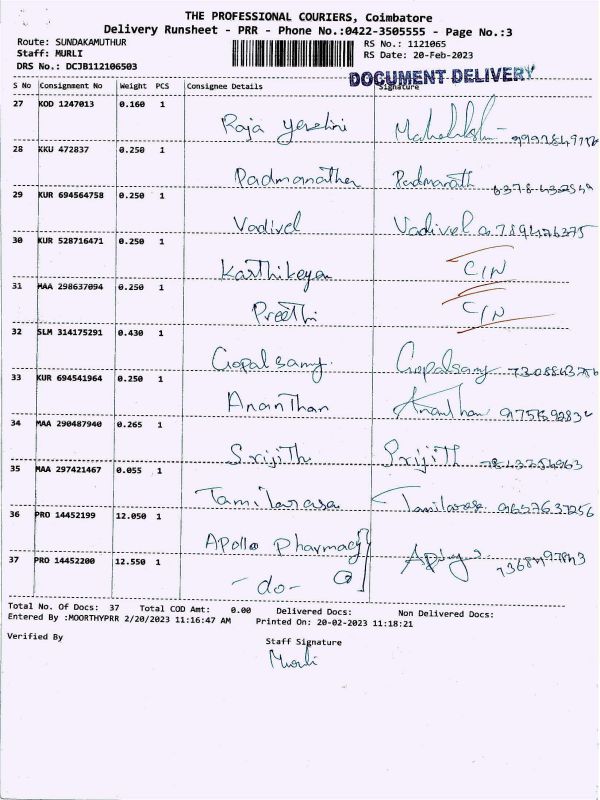 THE PROFESSIONAL COURIERS, Coimbatore
Delivery Runsheet - PRR - Phone No.:0422-3505555 - Page No.:3
Route: SUNDAKAMUTHUR
Staff: MURLI
DRS No.: DCJB112106503
RS No.: 1121065
RS Date: 20-Feb-2023
DOCUMENT DELIVERY
S No Consignment No Weight PCS Consignee Details Signature
27 KOD 1247013 0.160 1
Raja
28 KKU 472837 0.250 1
Padmanathan Padmanath
29 KUR 694564758 0.250 1
Vadivel Vadivel
30 KUR 528716471 0.250 1
Karthikeya C/N
31 MAA 298637094 0.250 1
Preethi C/N
32 SLM 314175291 0.430 1
Gopalsamy. Gopalsamy
33 KUR 694541964 0.250 1
Ananthan Ananthan
34 MAA 290487940 0.265 1
Srijith Srijith
35 MAA 297421467 0.055 1
Tamilarasa Tamilarasa 9637637256
36 PRO 14452199 12.050 1
Apollo Pharmacy
37 PRO 14452200 12.550 1
- do -
Total No. Of Docs: 37 Total COD Amt: 0.00 Delivered Docs: Non Delivered Docs:
Entered By :MOORTHYPRR 2/20/2023 11:16:47 AM Printed On: 20-02-2023 11:18:21
Verified By Staff Signature
Murli